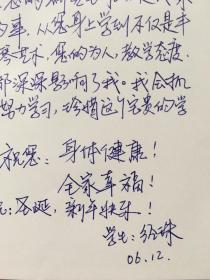 事，从您身上学到不仅是丰
琴艺术，您的为人，教学态度.
都深深影响了我。我会抓
努力学习，珍惜这个宝贵的学
祝您：身体健康！
全家幸福！
圣诞，新年快乐！
学生：
06.12.